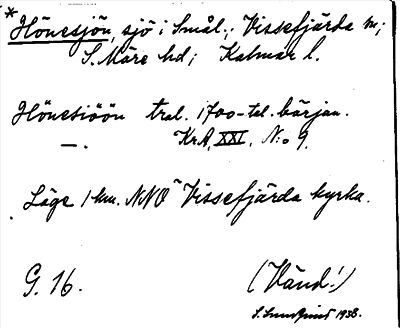 *Hönesjön, sjö i Smål., Vissefjärda sn;
S. Möre hd; Kalmar l.
Hönesiöön tral. 1700-tal. början.
—„— KrA, XXI, N:o 9.
Läge 1 km. NNO Vissefjärda kyrka.
G. 16. (Vänd!)
S. Lundquist 1938.